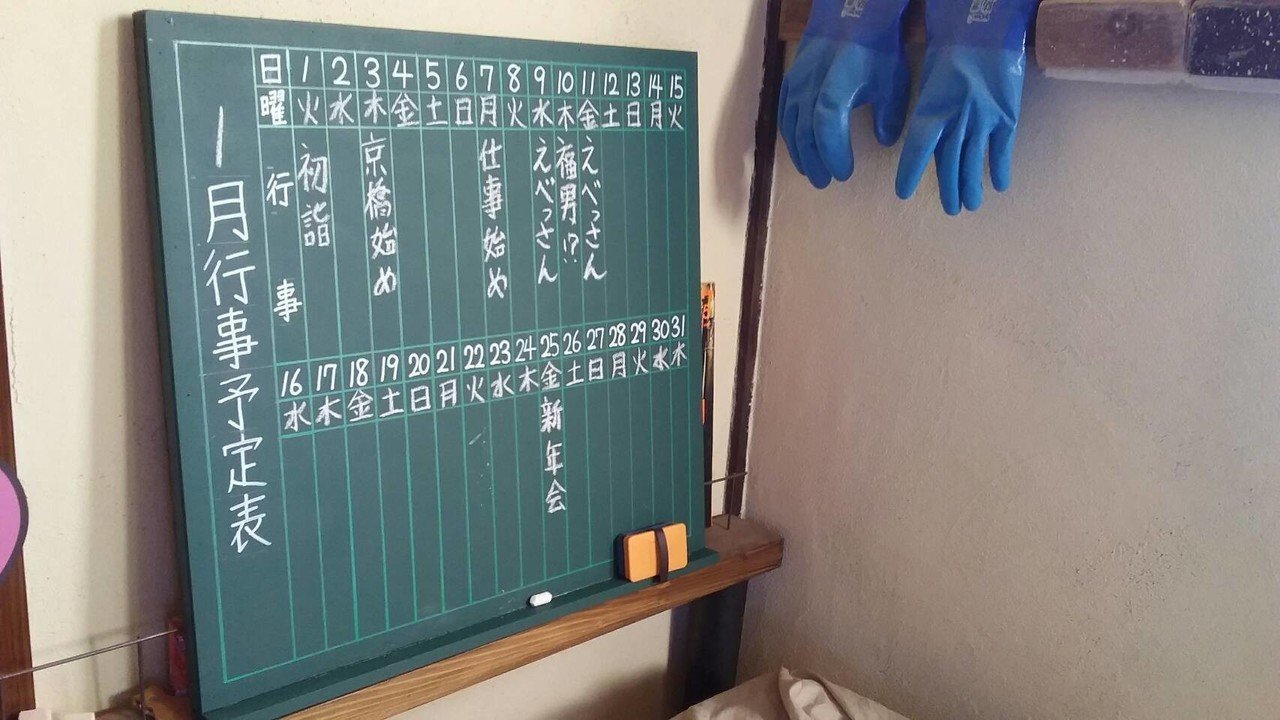 1月行事予定表
日 1 2 3 4 5 6 7 8 9 10 11 12 13 14 15
曜 火 水 木 金 土 日 月 火 水 木 金 土 日 月 火
行事
初詣
京橋始め
仕事始め
えべっさん
福男!?
えべっさん
16 17 18 19 20 21 22 23 24 25 26 27 28 29 30 31
水 木 金 土 日 月 火 水 木 金 土 日 月 火 水 木
新年会